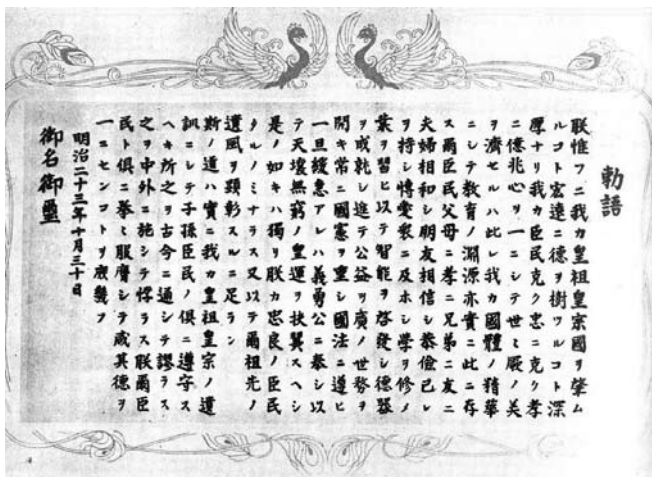 勅語
朕惟フニ我カ皇祖皇宗國ヲ肇ム
ルコト宏遠ニ德ヲ樹ツルコト深
厚ナリ我カ臣民克ク忠ニ克ク孝
ニ億兆心ヲ一ニシテ世々厥ノ美
ヲ濟セルハ此レ我カ國體ノ精華
ニシテ教育ノ淵源亦實ニ此ニ存
ス爾臣民父母ニ孝ニ兄弟ニ友ニ
夫婦相和シ朋友相信シ恭儉己レ
ヲ持シ博愛衆ニ及ホシ學ヲ修メ
業ヲ習ヒ以テ智能ヲ啓發シ德器
ヲ成就シ進テ公益ヲ廣メ世務ヲ
開キ常ニ國憲ヲ重シ國法ニ遵ヒ
一旦緩急アレハ義勇公ニ奉シ以
テ天壤無窮ノ皇運ヲ扶翼スヘシ
是ノ如キハ獨リ朕カ忠良ノ臣民
タルノミナラス又以テ爾祖先ノ
遺風ヲ顯彰スルニ足ラン
斯ノ道ハ實ニ我カ皇祖皇宗ノ遺
訓ニシテ子孫臣民ノ俱ニ遵守ス
ヘキ所之ヲ古今ニ通シテ謬ラス
之ヲ中外ニ施シテ悖ラス朕爾臣
民ト俱ニ拳々服膺シテ咸其德ヲ
一ニセンコトヲ庶幾フ
明治二十三年十月三十日
御名御璽